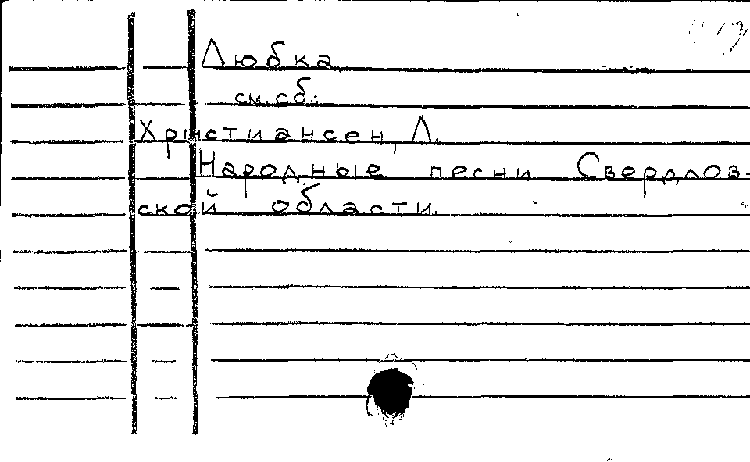 Любка
см.сб.:
Христиансен, Л.
Народные песни Свердлов-
ской области.